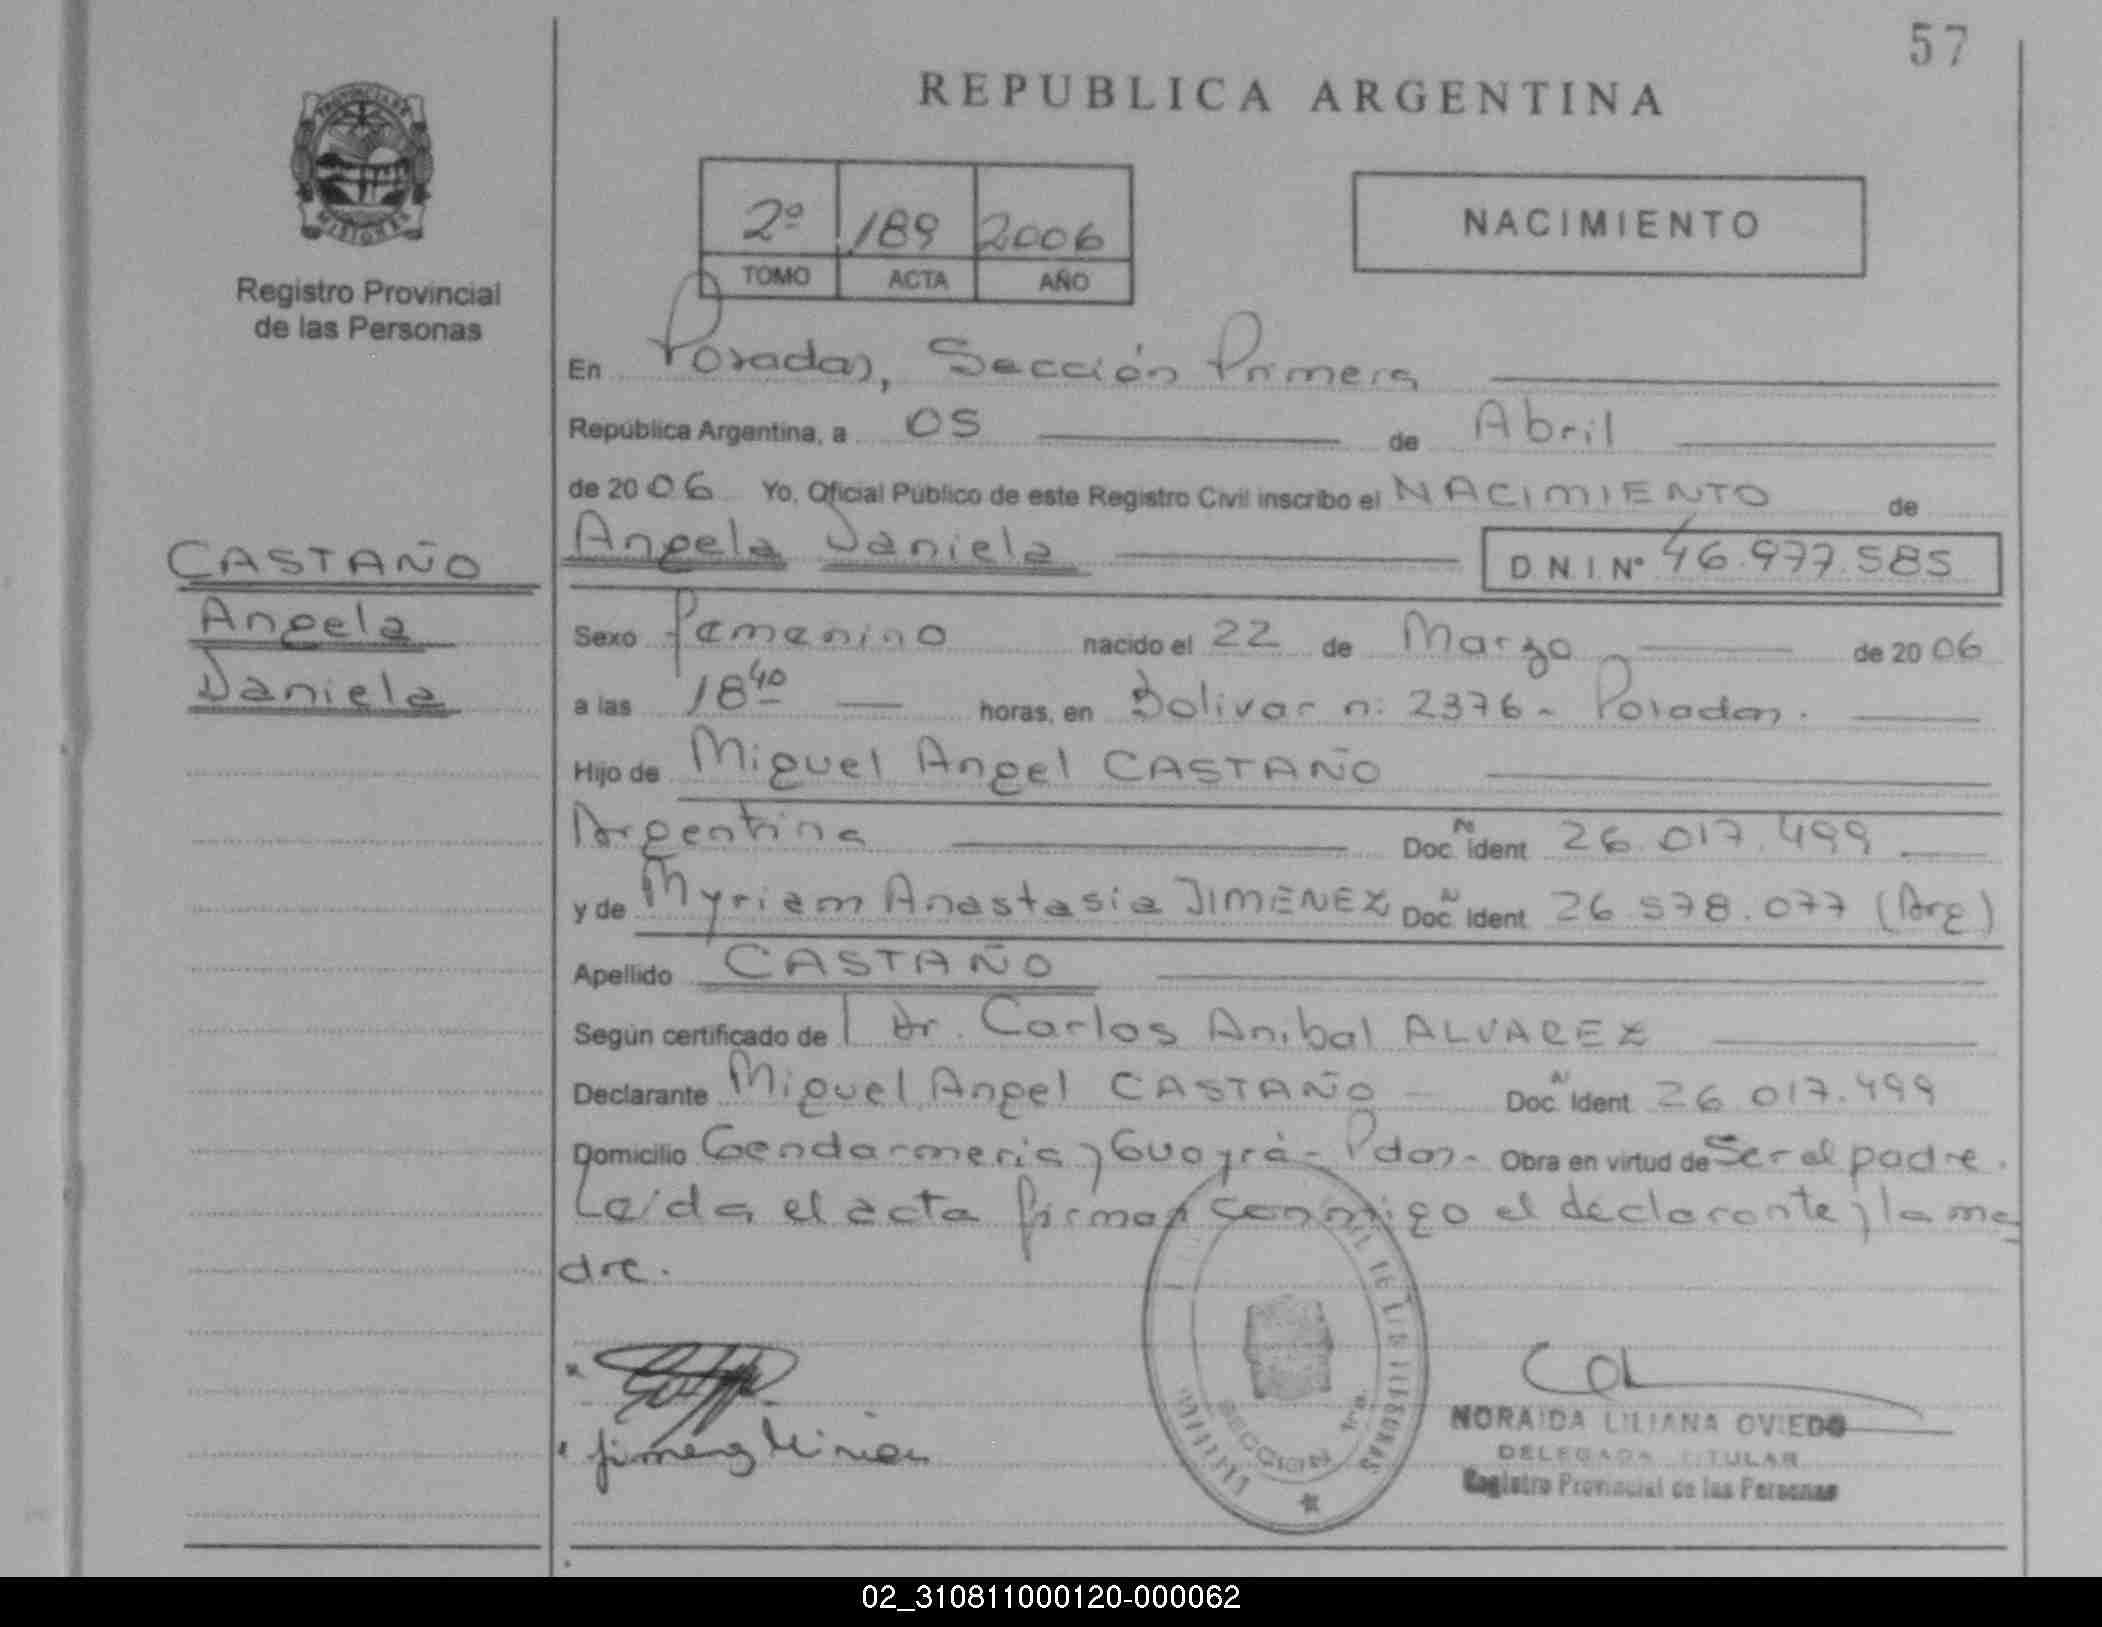 57
REPUBLICA ARGENTINA
PROVINCIA DE
MISIONES
Registro Provincial
de las Personas
2º 189 2006
TOMO ACTA AÑO
NACIMIENTO
En Posadas, Sección Primera
República Argentina, a 05 de Abril
de 2006 Yo, Oficial Público de este Registro Civil inscribo el NACIMIENTO de
Angela Daniela D.N.I. Nº 46.977.585
CASTAÑO
Angela
Daniela
Sexo femenino nacido el 22 de Marzo de 2006
a las 18 40 horas, en Bolivar n: 2376 - Posadas.
Hijo de Miguel Angel CASTAÑO
Argentina Doc. Nº ident 26.017.499
y de Myriam Anastasia JIMENEZ Doc. Nº Ident 26.578.077 (Arg)
Apellido CASTAÑO
Según certificado de Dr. Carlos Anibal ALVAREZ
Declarante Miguel Angel CASTAÑO Doc. Nº Ident 26.017.499
Domicilio Gendarmeria y Guayrá - Pdas - Obra en virtud de Ser el padre.
Leída el acta firman conmigo el declarante y la ma
dre.
SECCION 1ra.
Jimenez Mirian
NORAIDA LILIANA OVIEDO
DELEGADA TITULAR
Registro Provincial de las Personas
02_310811000120-000062